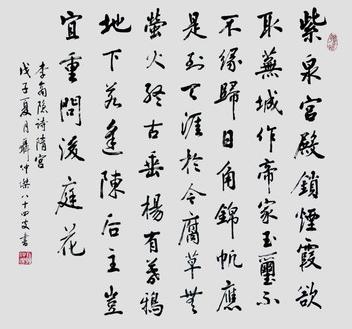 紫泉宮殿鎖煙霞欲
取蕪城作帝家玉璽不
不緣歸日角錦帆應
是到天涯於今腐草無
螢火終古垂楊有暮鴉
地下若逢陳后主豈
宜重問後庭花
李商隱詩隋宮
戊子夏月仲八十四叟書